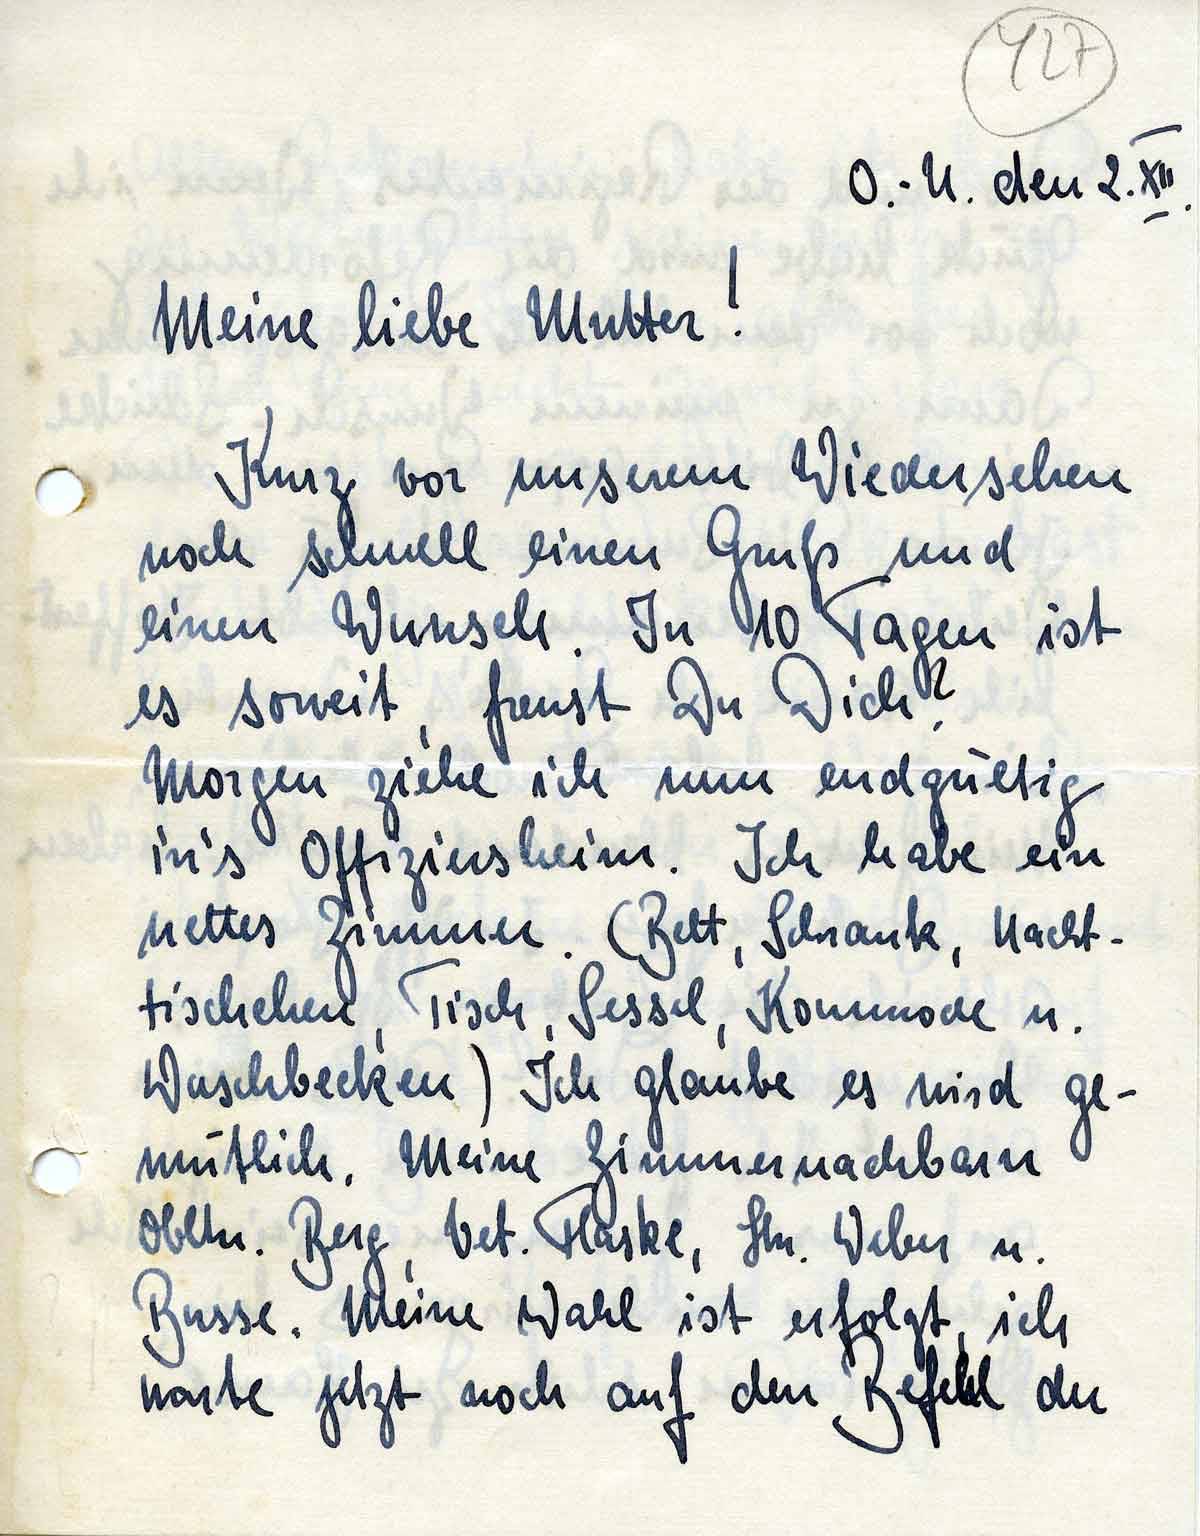 427
O.-U. den 2. XII.
Meine liebe Mutter!
Kurz vor unserem Wiedersehen
noch schnell einen Gruß und
einen Wunsch. In 10 Tagen ist
es soweit, freust Du Dich?
Morgen ziehe ich nun endgültig
in's Offiziersheim. Ich habe ein
nettes Zimmer. (Bett, Schrank, Nacht-
tischchen, Tisch, Sessel, Kommode u.
Waschbecken) Ich glaube es wird ge-
mütlich. Meine Zimmernachbarn
Obltn. Berg, Vet. Flaske, Ltn. Weber u.
Busse. Meine Wahl ist erfolgt, ich
warte jetzt noch auf den Befehl der